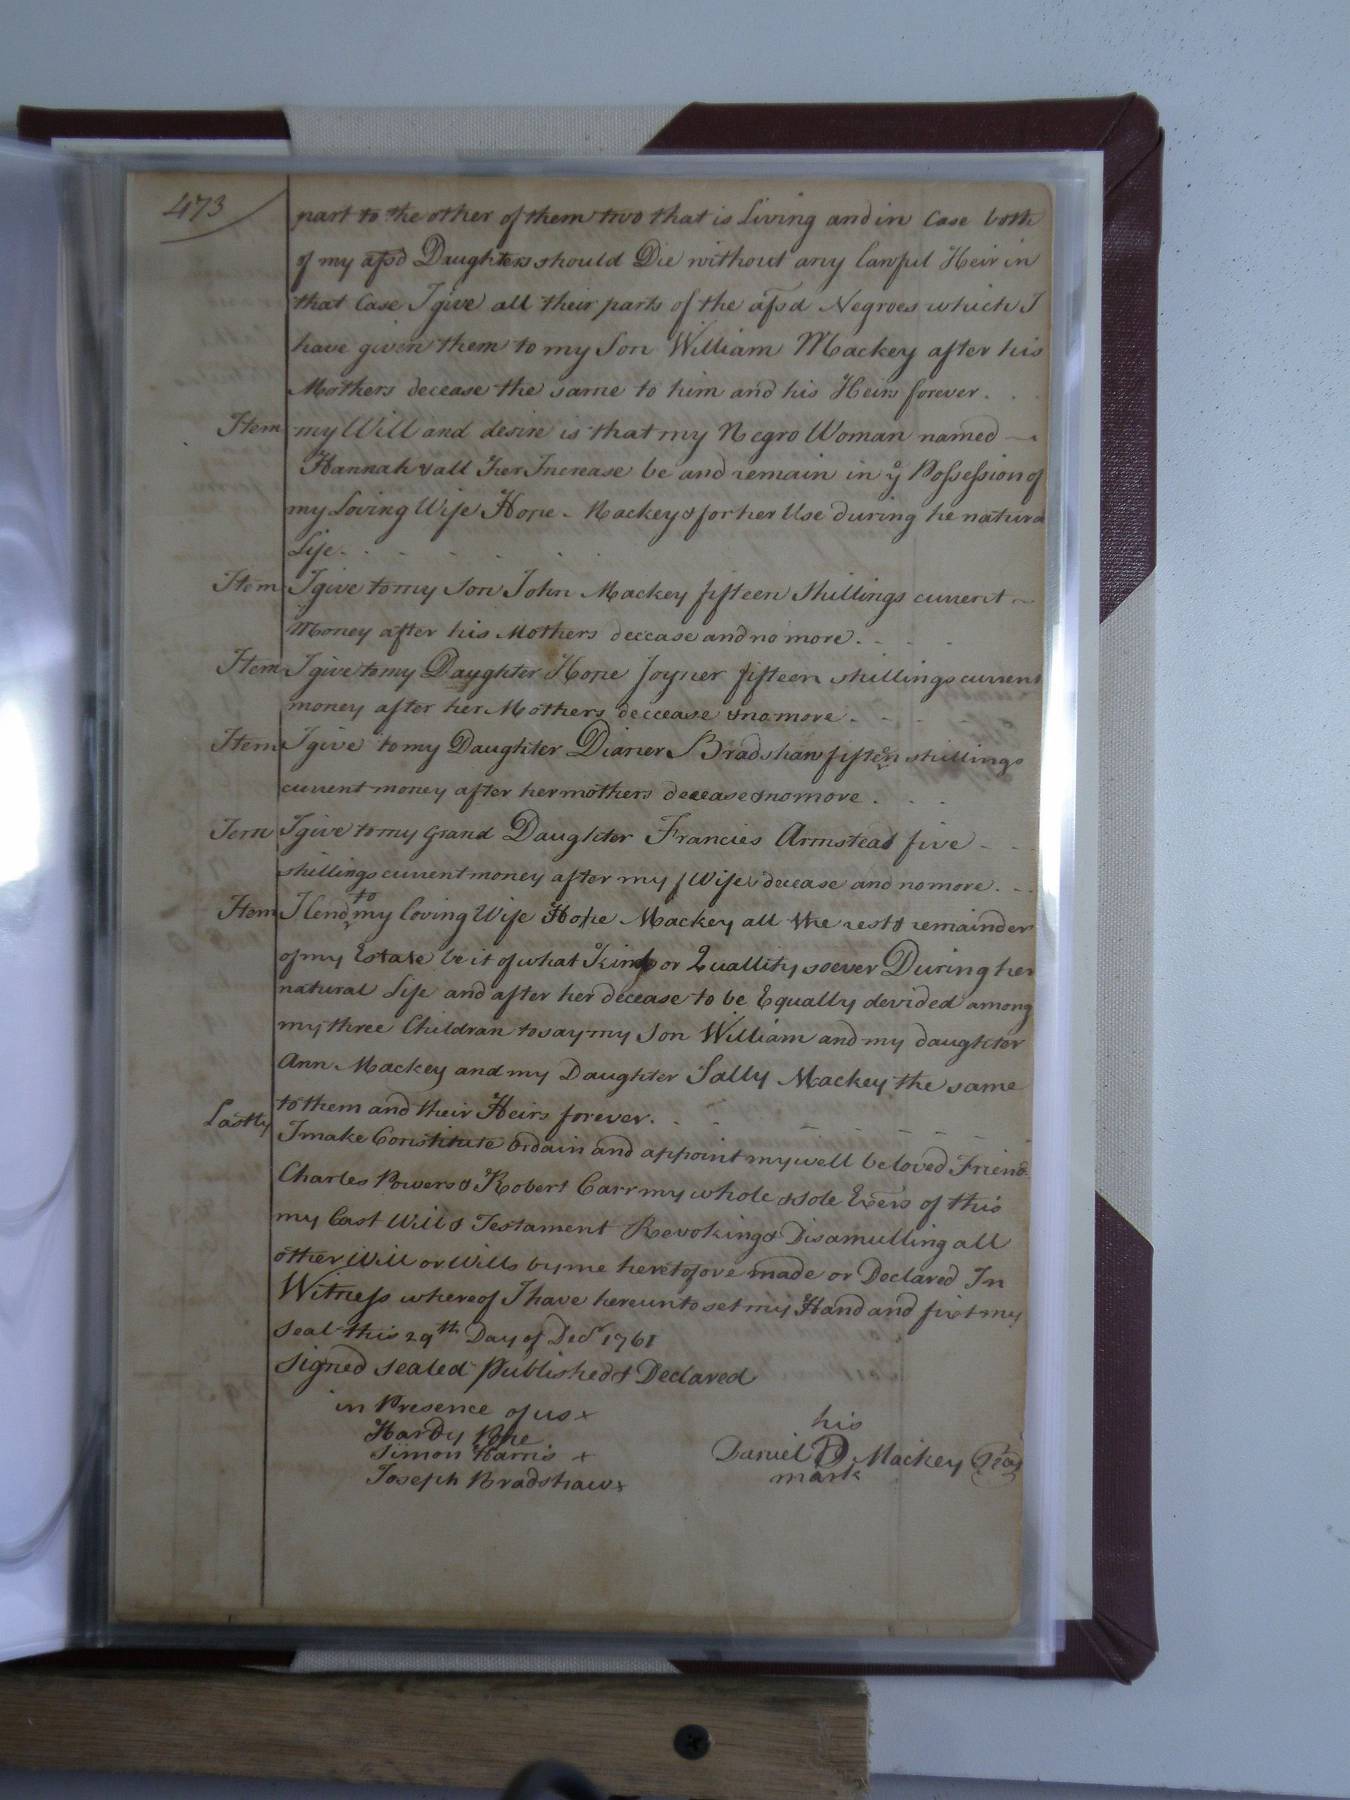 473
part to the other of them two that is Living and in Case both
of my afsd Daughters should Die without any lawful Heir in
that Case I give all their parts of the afsd Negroes which I
have given them to my Son William Mackey after his
Mothers decease the same to him and his Heirs forever.
Item my Will and desire is that my Negro Woman named
Hannah & all Her Increase be and remain in ye Possession of
my Loving Wife Hope Mackey & for her Use during he natura
Life.
Item I give to my Son John Mackey fifteen Shillings current
Money after his Mothers decease and no more.
Item I give to my Daughter Hope Joyner fifteen shillings current
money after her Mothers deccease & no more.
Item I give to my Daughter Dianer Bradshaw fifteen shillings
current money after her mothers decease & no more.
Tem I give to my Grand Daughter Francies Armstead five
shillings current money after my Wifes decease and no more.
Item I lend to my loving Wife Hope Mackey all the rest & remainder
of my Estate be it of what Kind or Quallity soever During her
natural Life and after her decease to be Equally devided among
my three Childran to say my Son William and my daughter
Ann Mackey and my Daughter Sally Mackey the same
to them and their Heirs forever.
Lastly I make Constitute Ordain and appoint my well beloved Friend
Charles Powers & Robert Carr my whole & sole Exers of this
my Last Will & Testament Revoking & Disamulling all
other Will or Wills by me heretofore made or Declared In
Witness whereof I have hereunto set my Hand and fixt my
Seal this 29th Day of Decr 1761
Signed Sealed Published & Declared
in Presence of us
Hardy Pope
Simon Harris
Joseph Bradshaw
his
Daniel D Mackey
mark